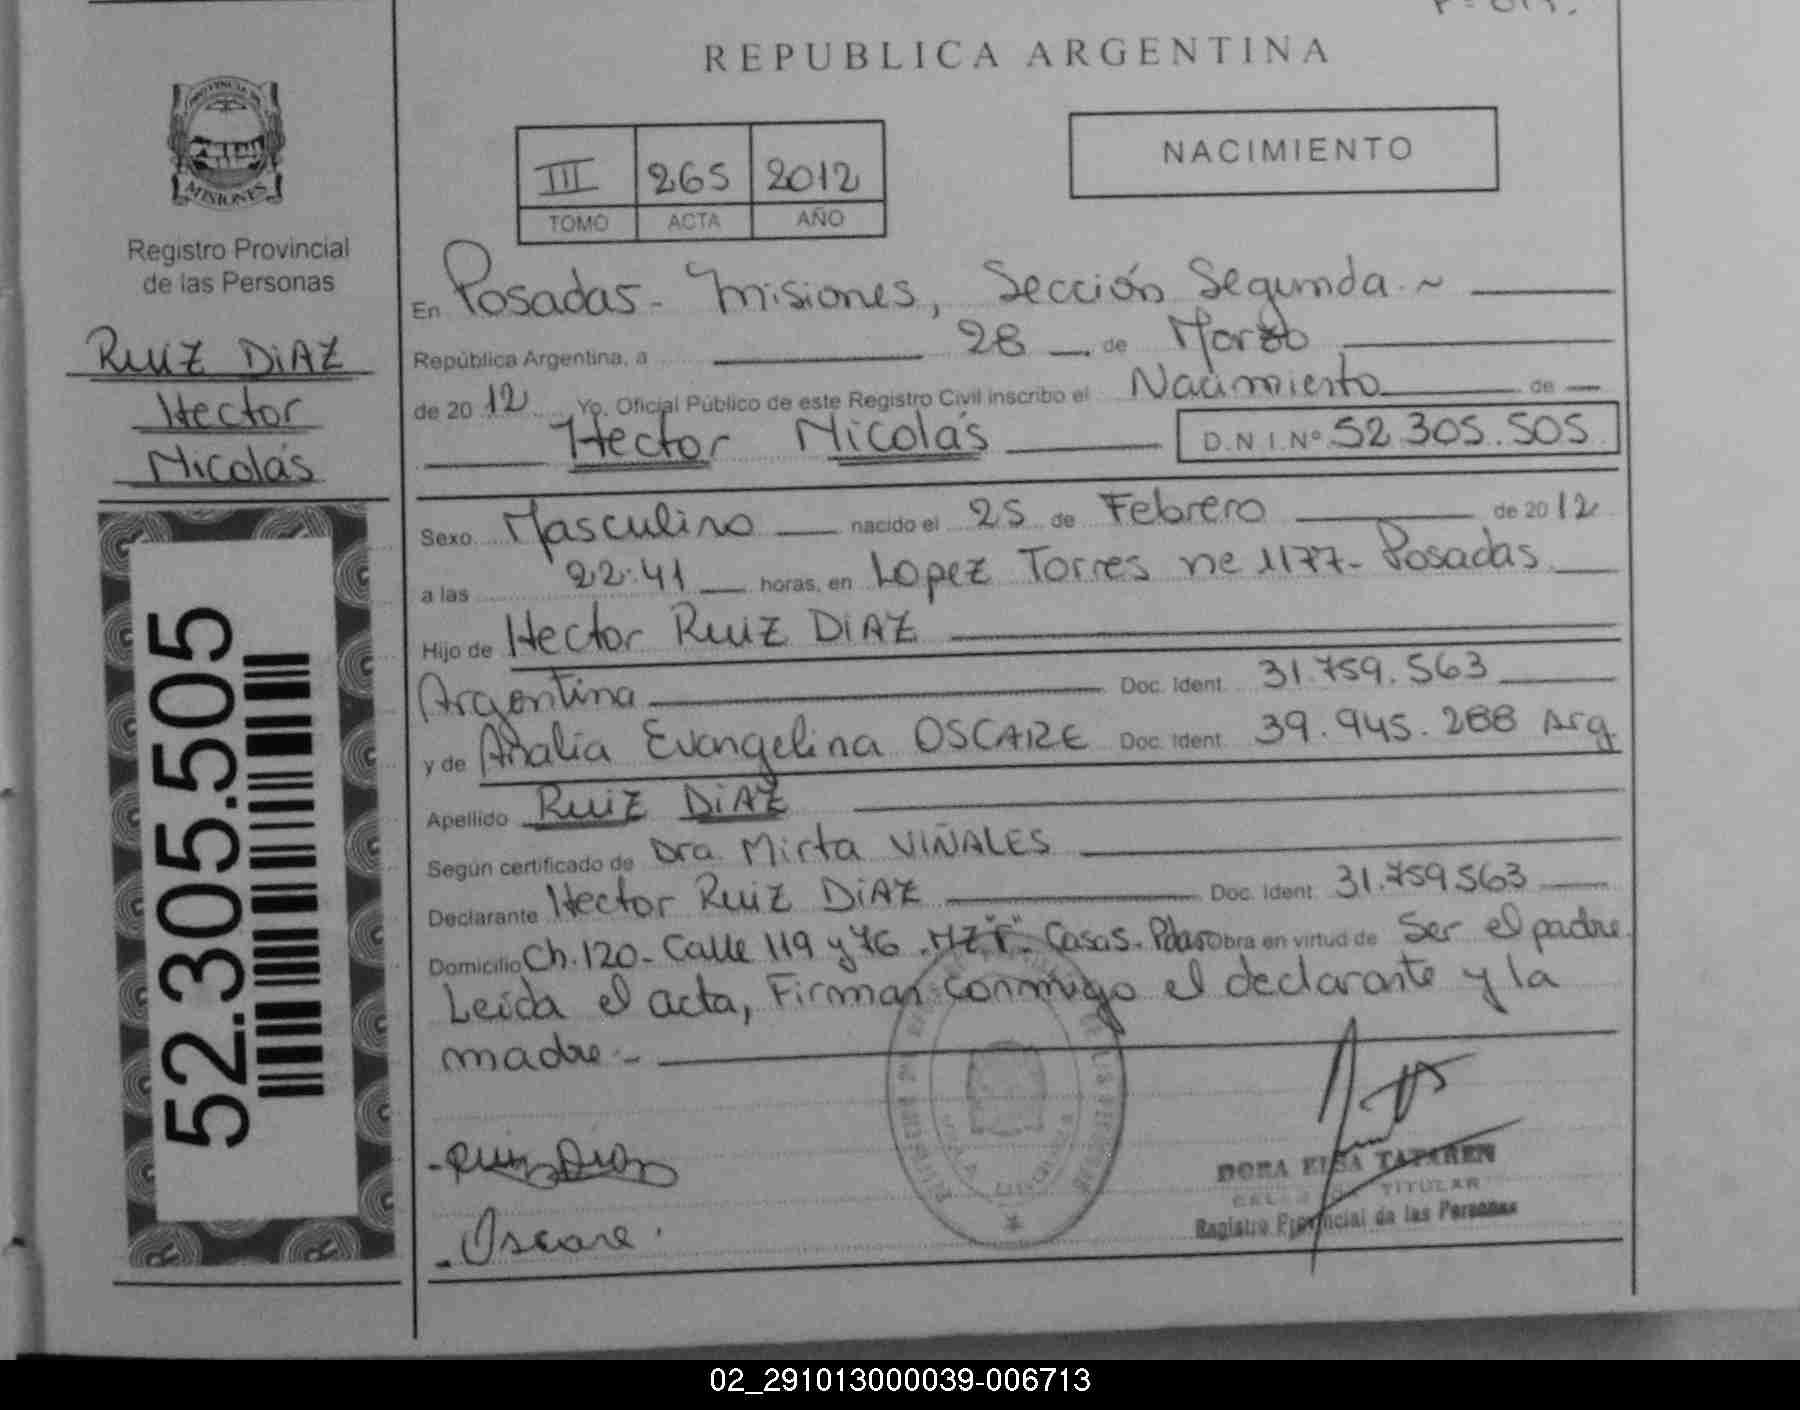 REPUBLICA ARGENTINA
PROVINCIA DE
MISIONES
Registro Provincial
de las Personas
RUIZ DIAZ
Hector
Nicolás
52.305.505
III 265 2012
TOMO ACTA AÑO
NACIMIENTO
En Posadas - Misiones, Sección Segunda ~
República Argentina, a 28 de Marzo
de 2012 Yo, Oficial Público de este Registro Civil inscribo el Nacimiento de
Hector Nicolás D.N.I.Nº 52.305.505
Sexo Masculino nacido el 25 de Febrero de 2012
a las 22:41 horas, en Lopez Torres nº 1177- Posadas
Hijo de Hector Ruiz DIAZ
Argentina Doc. Ident. 31.759.563
y de Analía Evangelina OSCARE Doc. Ident. 39.945.288 Arg
Apellido RUIZ DIAZ
Según certificado de Dra. Mirta VIÑALES
Declarante Hector Ruiz DIAZ Doc. Ident. 31.759563
Domicilio Ch. 120 - Calle 119 y 76 - MZ "I". Casas - Pdas Obra en virtud de Ser el padre
Leída el acta, Firman conmigo el declarante y la
madre.-
Ruiz Diaz
Oscare
DORA ELSA
TITULAR
Registro Provincial de las Personas
02_291013000039-006713